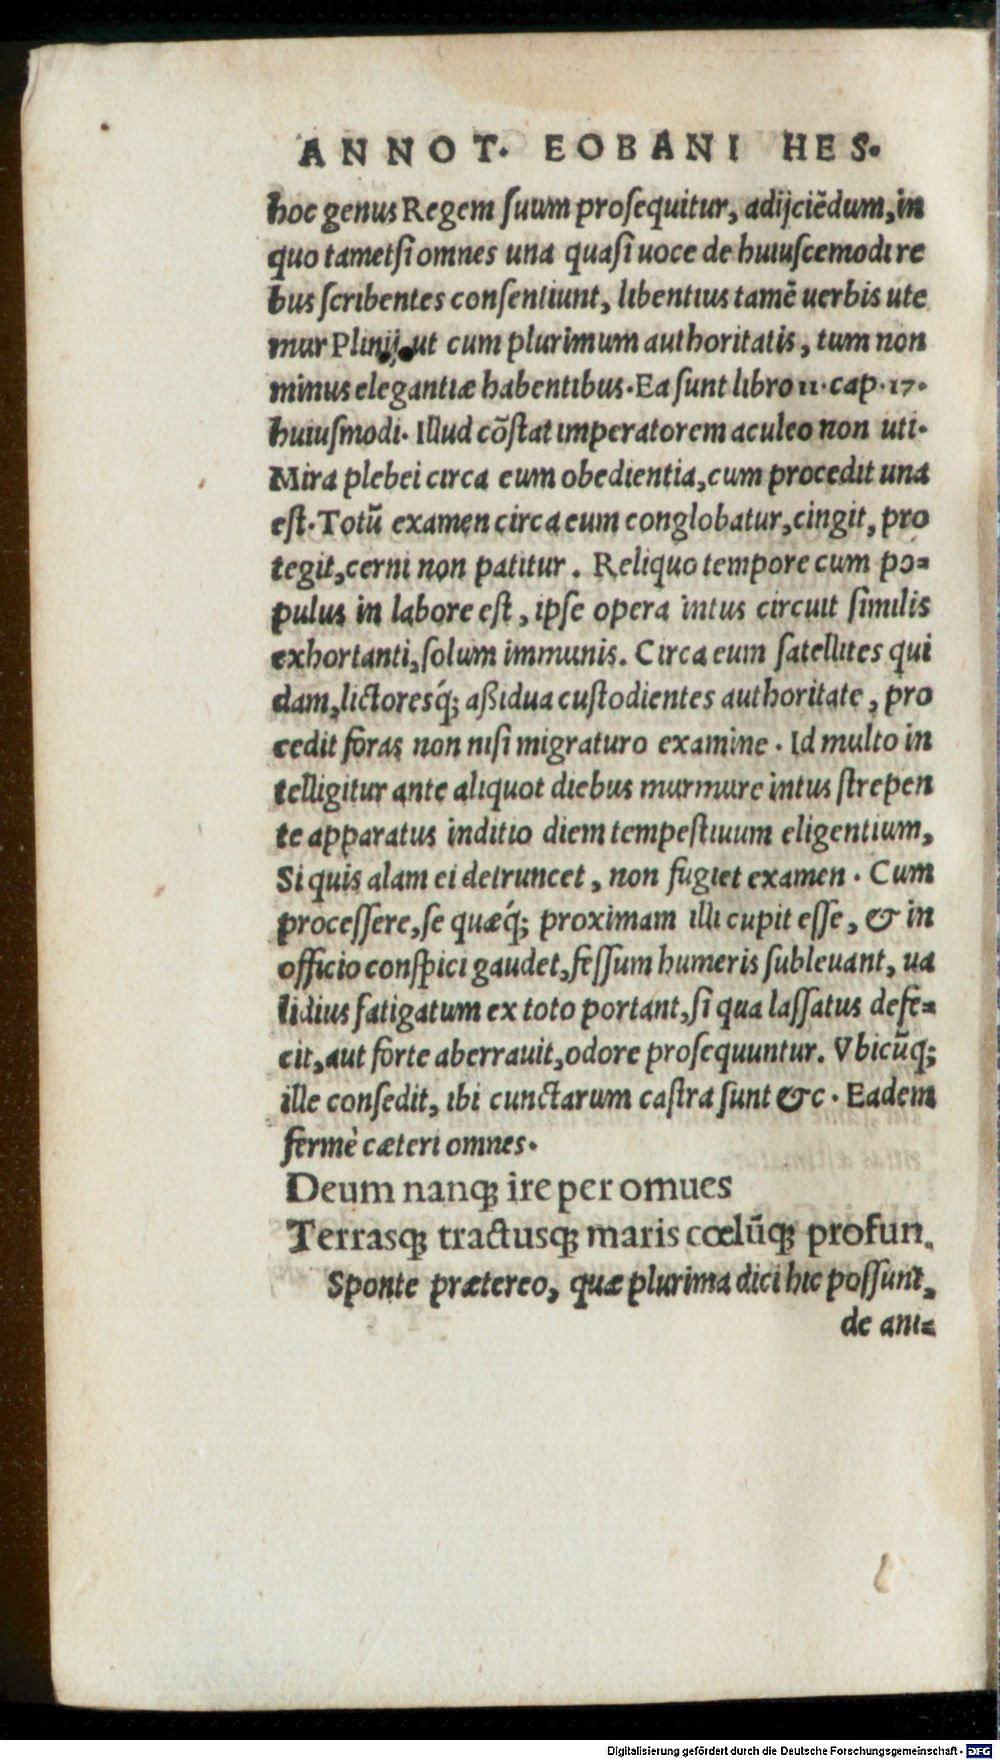 ANNOT. EOBANI HES.
hoc genus Regem suum prosequitur, adijciẽdum, in
quo tametsi omnes una quasi uoce de huiuscemodi re
bus scribentes consentiunt, libentius tamẽ uerbis ute
mur Plinij, ut cum plurimum authoritatis, tum non
minus elegantiæ habentibus. Ea sunt libro 11. cap. 17.
huiusmodi. Illud cõstat imperatorem aculeo non uti.
Mira plebei circa eum obedientia, cum procedit una
est. Totũ examen circa eum conglobatur, cingit, pro
tegit, cerni non patitur. Reliquo tempore cum po=
pulus in labore est, ipse opera intus circuit similis
exhortanti, solum immunis. Circa eum satellites qui
dam, lictoresq́; aßidua custodientes authoritate, pro
cedit foras non nisi migraturo examine. Id multo in
telligitur ante aliquot diebus murmure intus strepen
te apparatus inditio diem tempestiuum eligentium,
Si quis alam ei detruncet, non fugiet examen. Cum
processere, se quæq́; proximam illi cupit esse, & in
officio conspici gaudet, fessum humeris subleuant, ua
lidius fatigatum ex toto portant, si qua lassatus defe=
cit, aut forte aberrauit, odore prosequuntur. Vbicũq;
ille consedit, ibi cunctarum castra sunt &c. Eadem
fermè cæteri omnes.
Deum nanq; ire per omues
Terrasq; tractusq; maris cœlũq; profun.
Sponte prætereo, quæ plurima dici hic possunt,
de ani=
Digitalisierung gefördert durch die Deutsche Forschungsgemeinschaft - DFG